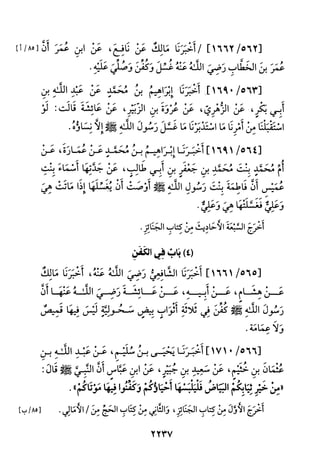 [٥٦٢/ ١٦٦٢] / أَخْبَرَنَا مَالِكٌ عَنْ نَافِعٍ، عَنْ ابنِ عُمَرَ أَنَّ [٨٥/ أ]
عُمَرَ بنَ الخَطَّابِ رَضِيَ اللَّهُ عَنْهُ غُسِّلَ وَكُفِّنَ وَصُلِّيَ عَلَيْهِ.
[٥٦٣/ ١٦٩٠] أَخْبَرَنَا إِبْرَاهِيمُ بنُ مُحَمَّدٍ عَنْ عَبْدِ اللَّهِ بنِ
أَبِي بَكْرٍ، عَنْ الزُّهْرِيِّ، عَنْ عُرْوَةَ بنِ الزُّبَيْرِ، عَنْ عَائِشَةَ قَالَتْ: لَوْ
اسْتَقْبَلْنَا مِنْ أَمْرِنَا مَا اسْتَدْبَرْنَا مَا غَسَّلَ رَسُولَ اللَّهِ ﷺ إِلَّا نِسَاؤُهُ.
[٥٦٤/ ١٦٩١] أَخْبَرَنَا إِبْرَاهِيمُ بنُ مُحَمَّدٍ عَنْ عُمَارَةَ، عَنْ
أُمِّ مُحَمَّدٍ بِنْتِ مُحَمَّدِ بنِ جَعْفَرِ بنِ أَبِي طَالِبٍ، عَنْ جَدَّتِهَا أَسْمَاءَ بِنْتِ
عُمَيْسٍ أَنَّ فَاطِمَةَ بِنْتَ رَسُولِ اللَّهِ ﷺ أَوْصَتْ أَنْ يُغَسِّلَهَا إِذَا مَاتَتْ هِيَ
وَعَلِيٌّ فَغَسَّلَتْهَا هِيَ وَعَلِيٌّ.
أَخْرَجَ السَّبْعَةَ الأَحَادِيثَ مِنْ كِتابِ الجَنَائِزِ.
(٤) بَابٌ فِي الكَفَنِ
[٥٦٥/ ١٦٦١] أَخْبَرَنَا الشَّافِعِيُّ رَضِيَ اللَّهُ عَنْهُ، أَخْبَرَنَا مَالِكٌ
عَنْ هِشَامٍ، عَنْ أَبِيهِ، عَنْ عَائِشَةَ رَضِيَ اللَّهُ عَنْهَا أَنَّ
رَسُولَ اللَّهِ ﷺ كُفِّنَ فِي ثَلَاثَةِ أَثْوَابٍ بِيضٍ سَحُولِيَّةٍ لَيْسَ فِيهَا قَمِيصٌ
وَلَا عِمَامَةٌ.
[٥٦٦/ ١٧١٠] أَخْبَرَنَا يَحْيَى بنُ سُلَيْمٍ، عَنْ عَبْدِ اللَّهِ بنِ
عُثْمَانَ بنِ خُثَيْمٍ، عَنْ سَعِيدِ بنِ جُبَيْرٍ، عَنْ ابنِ عَبَّاسٍ أَنَّ النَّبِيَّ ﷺ قَالَ:
«مِنْ خَيْرِ ثِيَابِكُمُ البَيَاضُ فَلْيَلْبَسْهَا أَحْيَاؤُكُمْ وَكَفِّنُوا فِيهَا مَوْتَاكُمْ».
أَخْرَجَ الأَوَّلَ مِنْ كِتابِ الجَنَائِزِ، وَالثَّانِي مِنْ كِتَابِ الحَجِّ مِنَ / الأَمَالِي. [٨٥/ ب]
٢٢٣٧